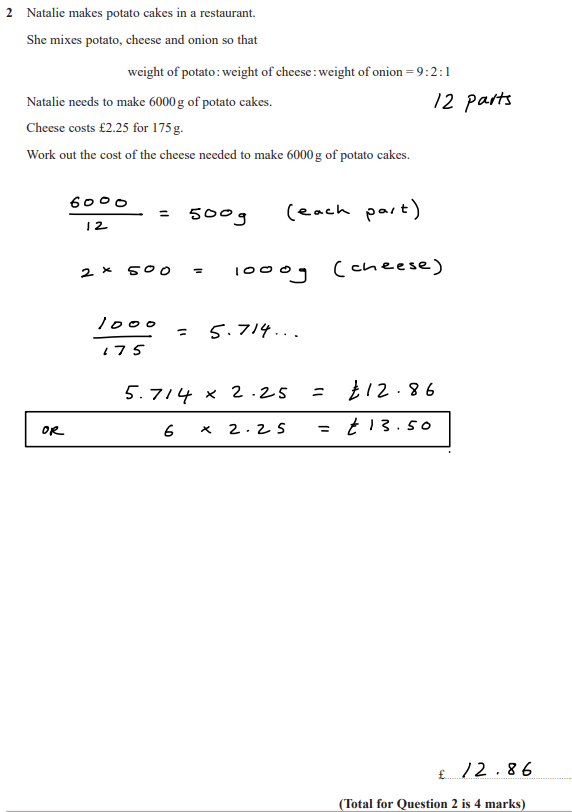 2 Natalie makes potato cakes in a restaurant.
She mixes potato, cheese and onion so that
weight of potato : weight of cheese : weight of onion = 9 : 2 : 1
Natalie needs to make 6000 g of potato cakes.
12 parts
Cheese costs £2.25 for 175 g.
Work out the cost of the cheese needed to make 6000 g of potato cakes.
6000
12
= 500g (each part)
2 × 500 = 1000g (cheese)
1000
175
= 5.714...
5.714 × 2.25 = £12.86
OR 6 × 2.25 = £13.50
£ 12.86
(Total for Question 2 is 4 marks)